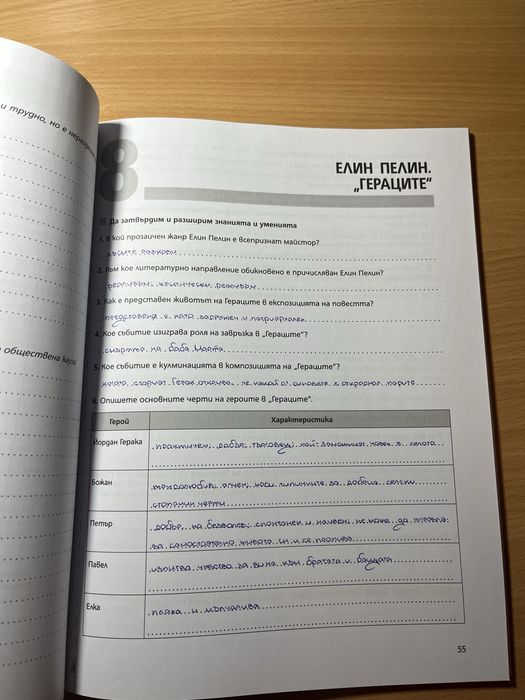 и трудно, но е неразделна
общественa кауза
8
ЕЛИН ПЕЛИН.
„ГЕРАЦИТЕ“
Да затвърдим и разширим знанията и уменията
1. В кой прозаичен жанр Елин Пелин е всепризнат майстор?
късите разкази
2. Към кое литературно направление обикновено е причисляван Елин Пелин?
реализъм, критически реализъм
3. Как е представен животът на Гераците в експозицията на повестта?
представена е като задружен и патриархален
4. Кое събитие изиграва роля на завръзка в „Гераците“?
смъртта на баба Марга
5. Кое събитие е кулминацията в композицията на „Гераците“?
когато старият Герак отключва, че някой от синовете е откраднал парите
6. Опишете основните черти на героите в „Гераците“.
Герой Характеристика
Йордан Герака
практичен, добър, търговец, най-заможният човек в селото
Божан
трудолюбив, носи типичните за добрия селски
стопанин черти
Петър
добър, на безволев, спонтанен и не може да
за самостоятелно живота си и се пропива
Павел
изпитва чувства за вина към братята и бащата
Елка
плаха и мълчалива
55